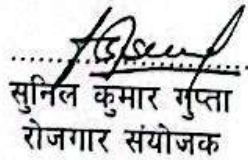 सुनिल कुमार गुप्ता
रोजगार संयोजक